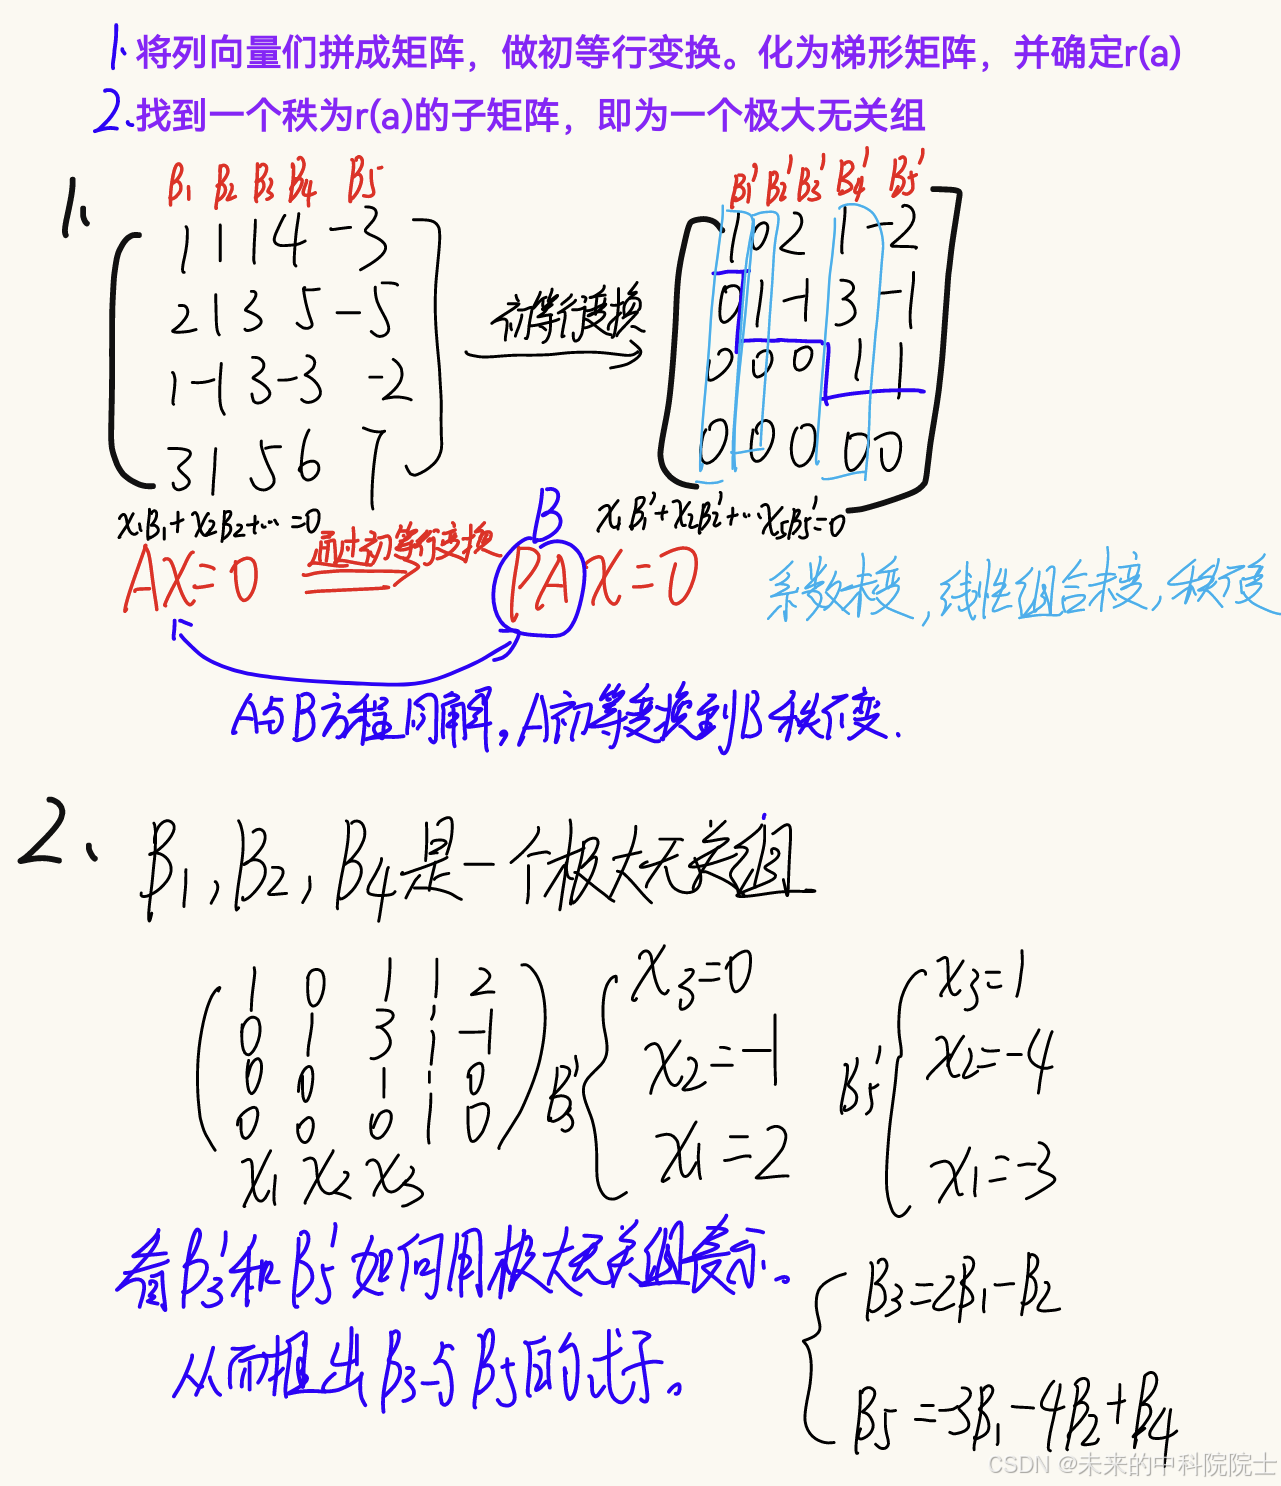 1. 将列向量们拼成矩阵，做初等行变换。化为梯形矩阵，并确定r(a)
2. 找到一个秩为r(a)的子矩阵，即为一个极大无关组
1、
B1 B2 B3 B4 B5
1 1 1 4 -3
2 1 3 5 -5
1 -1 3 -3 -2
3 1 5 6 7
初等行变换
B1' B2' B3' B4' B5'
1 0 2 1 -2
0 1 -1 3 -1
0 0 0 1 1
0 0 0 0 0
x1B1+x2B2+… =0
x1B1'+x2B2'+…x5B5'=0
B
AX=0 通过初等行变换 PAX=0
系数未变，线性组合未变，秩不变
A与B方程同解，A初等变换到B秩不变.
2、
B1，B2，B4是一个极大无关组
1 0 1 | 2
0 1 3 | -1
0 0 1 | 0
0 0 0 | 0
x1 x2 x3
B3' { x3=0
x2=-1
x1=2
B5' { x3=1
x2=-4
x1=-3
看B3'和B5'如何用极大无关组表示。
从而推出B3与B5的式子。
B3=2B1-B2
B5=-3B1-4B2+B4
CSDN @未来的中科院院士